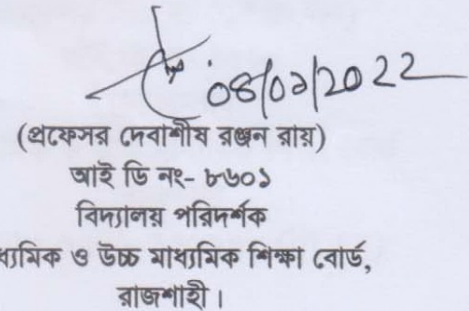 08/০১/2022
(প্রফেসর দেবাশীষ রঞ্জন রায়)
আই ডি নং- ৮৬০১
বিদ্যালয় পরিদর্শক
ধ্যমিক ও উচ্চ মাধ্যমিক শিক্ষা বোর্ড,
রাজশাহী।